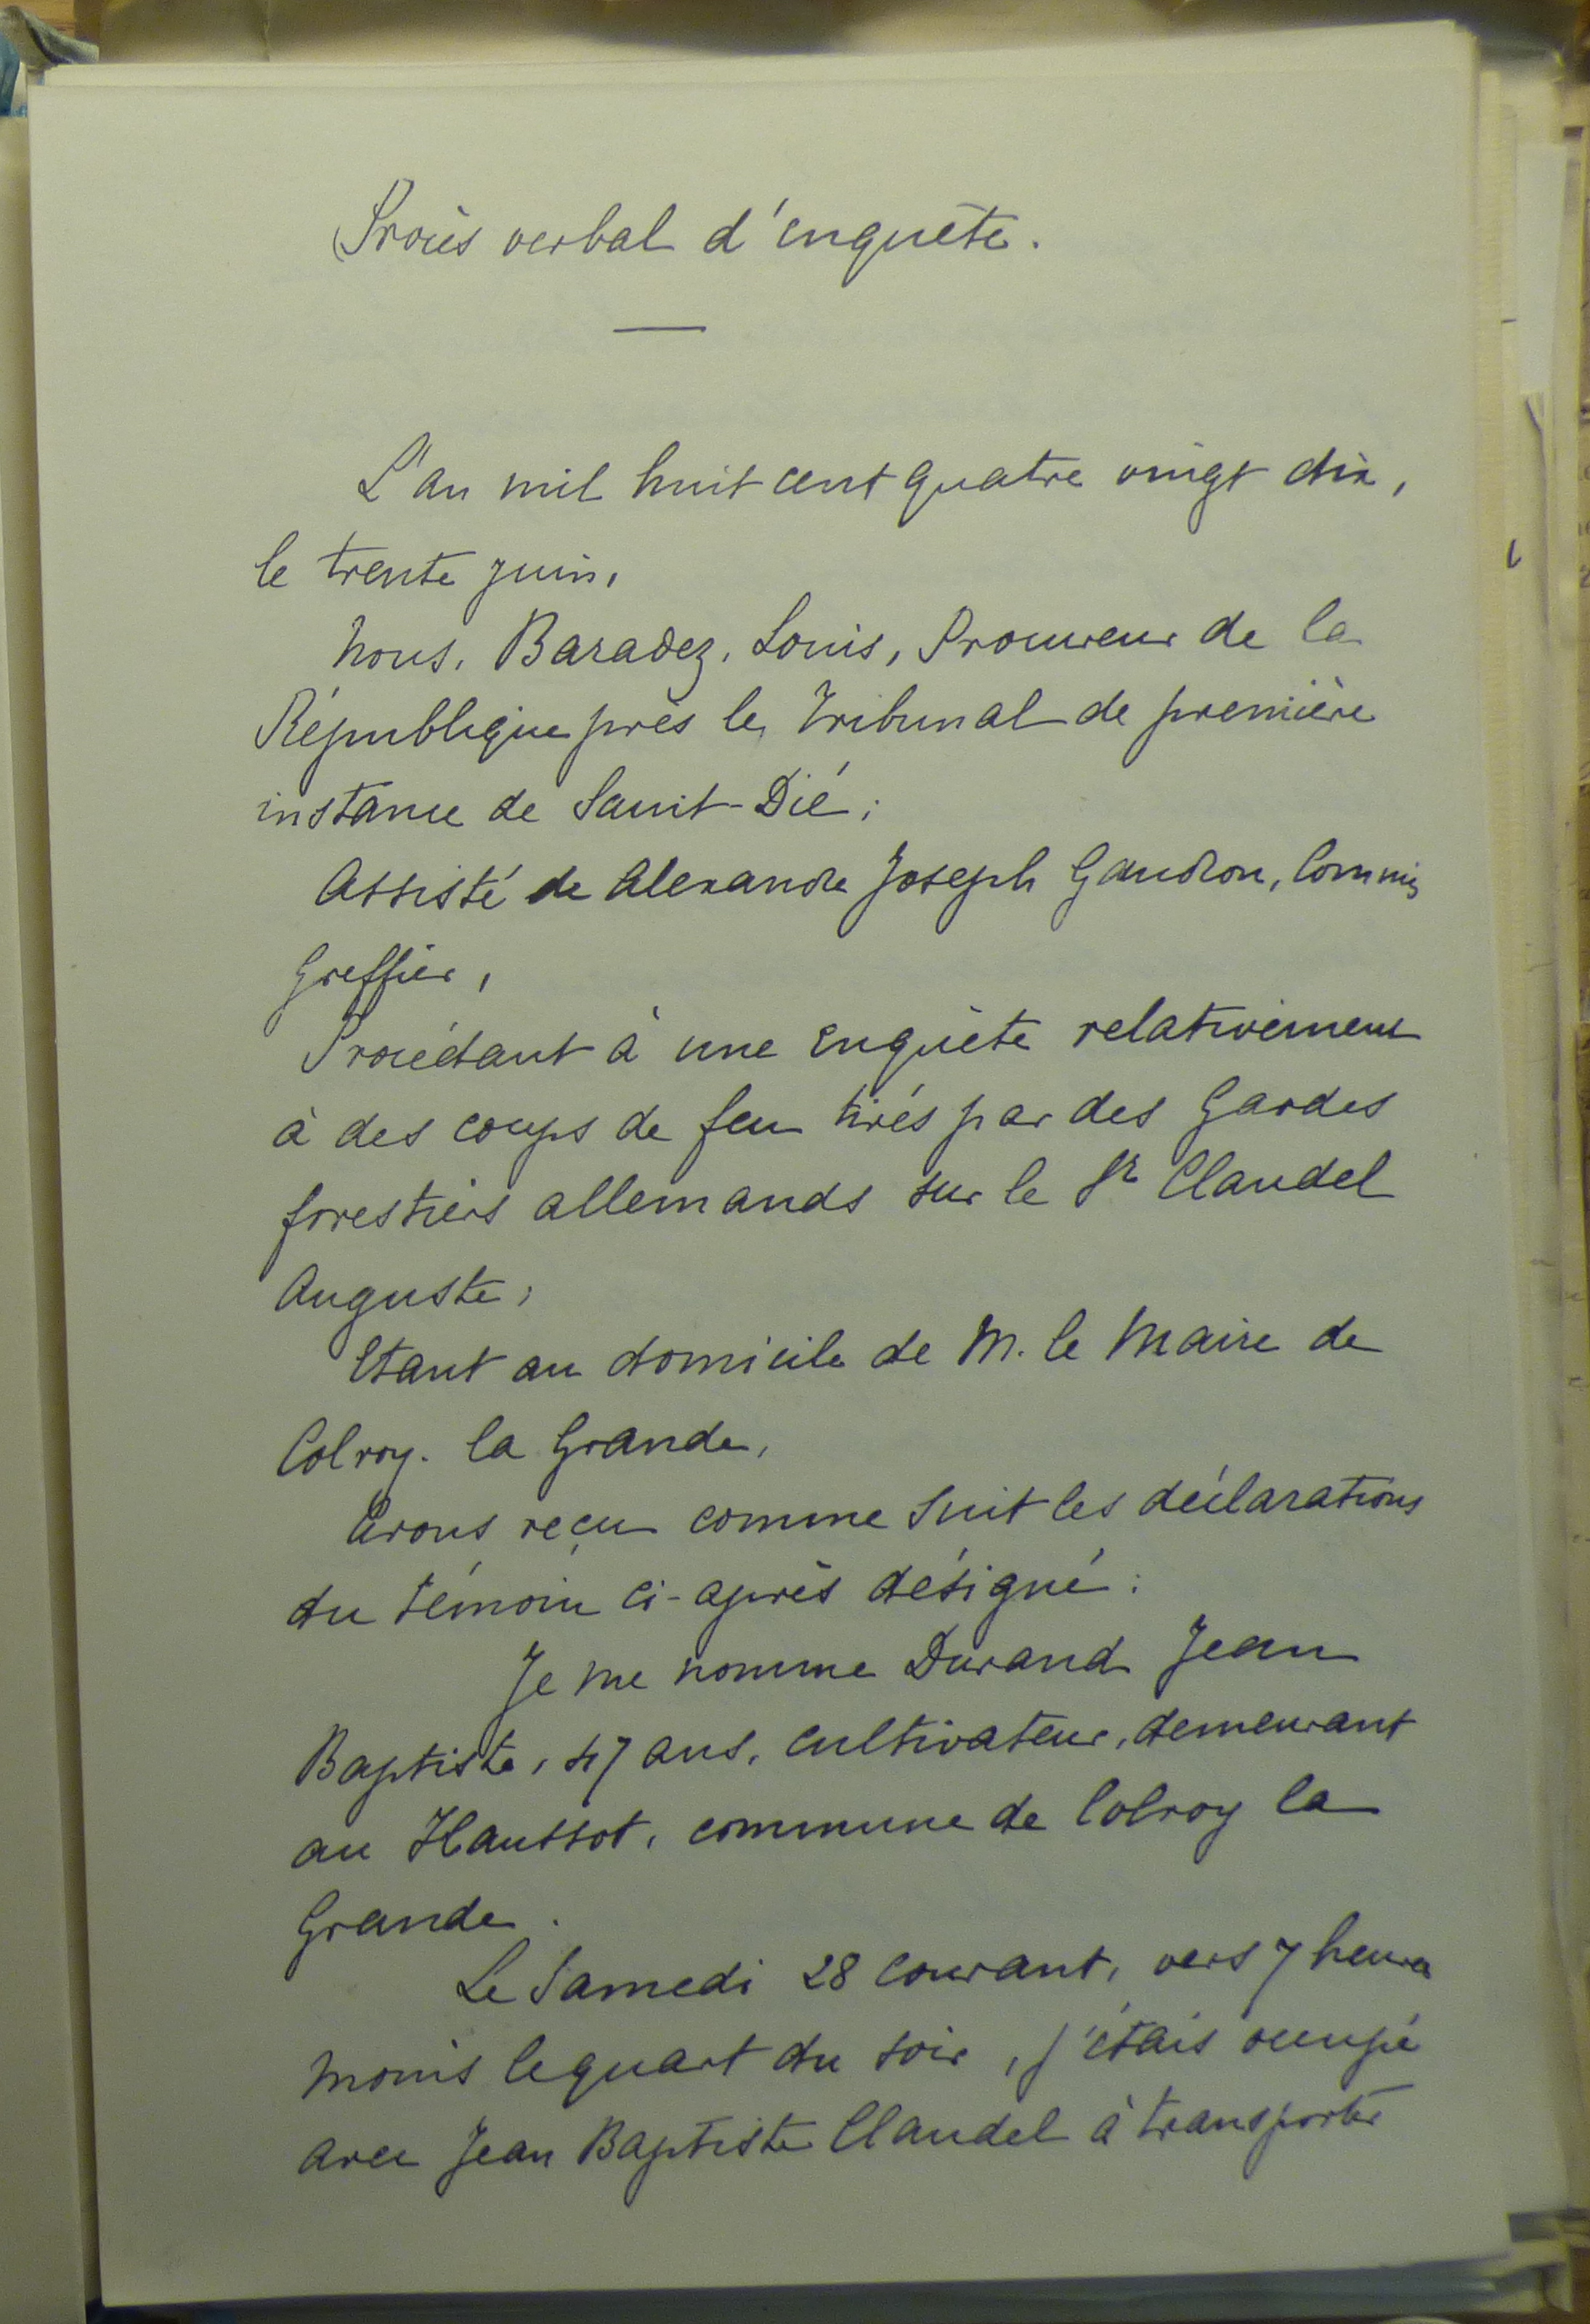 Procès verbal d'enquête.
L'an mil huit cent quatre vingt dix,
le trente juin,
Nous, Baradez, Louis, Procureur de la
République près le Tribunal de première
instance de Saint-Dié;
Assisté de Alexandre Joseph Gaudron, Commis
Greffier,
Procédant à une enquête relativement
à des coups de feu tirés par des Gardes
forestiers allemands sur le Sr Claudel
Auguste;
Etant au domicile de M. le Maire de
Colroy. la Grande,
Avons reçu comme suit les déclarations
du témoin ci-après désigné:
Je me nomme Durand Jean
Baptiste, 47 ans, cultivateur, demeurant
au Haussot, commune de Colroy la
Grande.
Le Samedi 28 courant, vers 7 heures
moins le quart du soir, j'étais occupé
avec Jean Baptiste Claudel à transporter